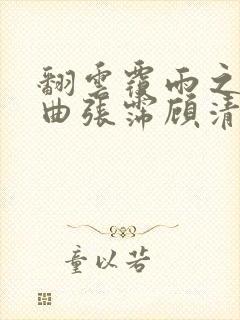 翻雲覆雨之
曲張霈顧清
童以若